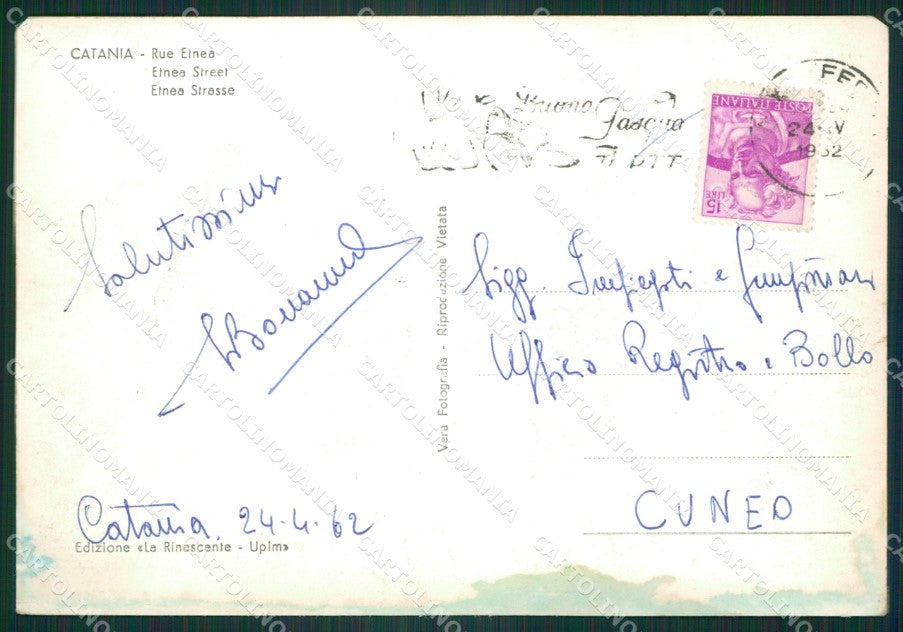 CATANIA - Rue Etnea
Etnea Street
Etnea Strasse
Buona Pasqua
FER
24-IV
1962
POSTE ITALIANE
LIRE 15
Salutissimi
Sigg. Impiegati e
Ufficio Registro e Bollo
CUNEO
Vera Fotografia - Riproduzione Vietata
Catania, 24.4.62
Edizione «La Rinascente - Upim»
CARTOLINOMANIA